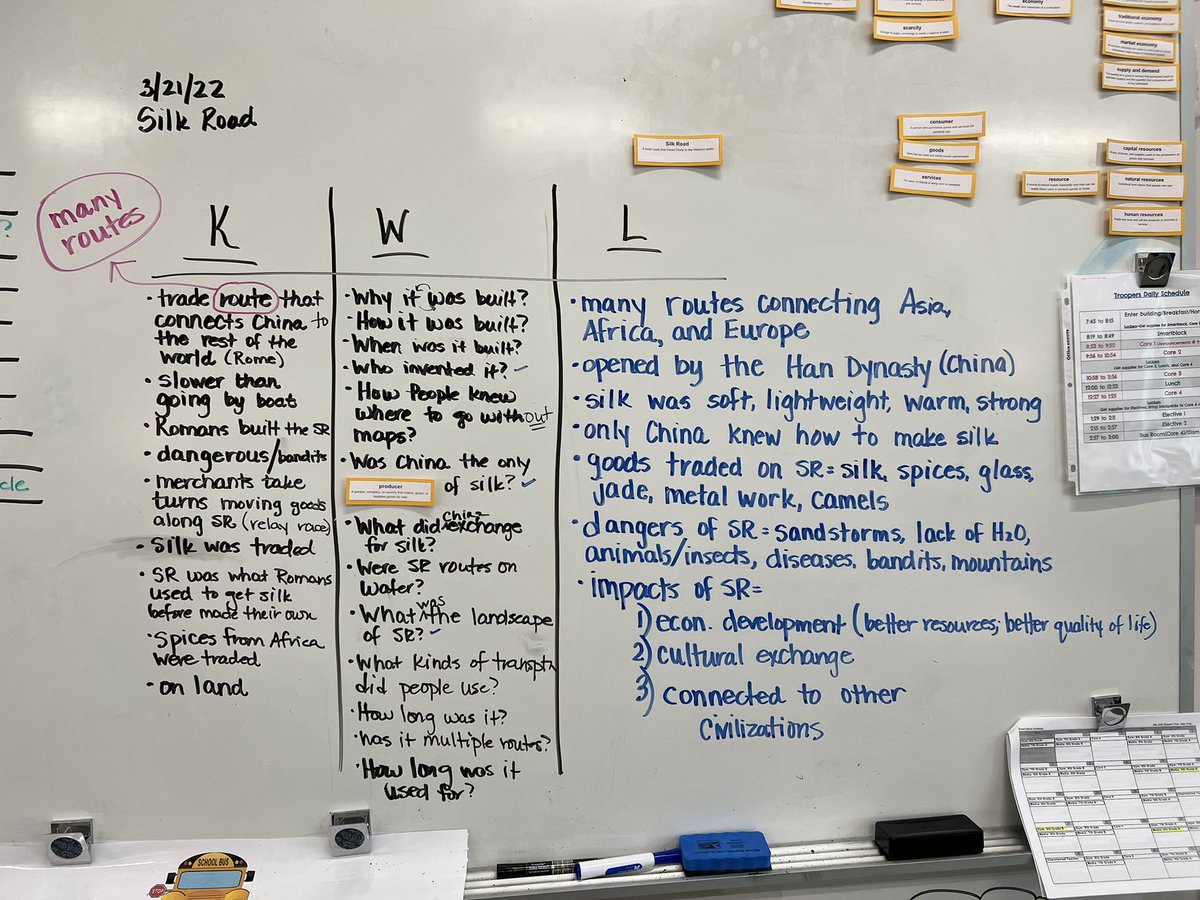 3/21/22
Silk Road
many
routes
K
• trade route that
connects China to
the rest of the
world (Rome)
• slower than
going by boat
• Romans built the SR
• dangerous/bandits
• merchants take
turns moving goods
along SR (relay race)
• Silk was traded
• SR was what Romans
used to get silk
before made their own
• Spices from Africa
were traded
• on land
W
• Why it was built?
• How it was built?
• When was it built?
• Who invented it? ✓
• How People knew
where to go without
maps?
• Was China the only
of silk? ✓
producer
• What did China exchange
for silk?
• Were SR routes on
water?
• What was the landscape
of SR? ✓
• What kinds of transptn
did people use?
• How long was it?
• has it multiple routes?
• How long was it
used for?
L
• many routes connecting Asia,
Africa, and Europe
• opened by the Han Dynasty (China)
• silk was soft, lightweight, warm, strong
• only China knew how to make silk
• goods traded on SR = silk, spices, glass,
jade, metal work, camels
• dangers of SR = sandstorms, lack of H2O,
animals/insects, diseases, bandits, mountains
• impacts of SR=
1) econ. development (better resources; better quality of life)
2) cultural exchange
3) connected to other
civilizations
Silk Road
A trade route that linked China to the Western world
economy
scarcity
traditional economy
market economy
supply and demand
consumer
goods
services
resource
capital resources
natural resources
Something from nature that people can use
human resources
Troopers Daily Schedule
7:45 to 8:15 Enter building/Breakfast/
8:19 to 8:49 Smartblock
8:53 to 9:52 Core 1
9:56 to 10:54 Core 2
10:58 to 11:56 Core 3
12:00 to 12:23 Lunch
12:27 to 1:25 Core 4
1:29 to 2:11 Elective 1
2:15 to 2:57 Elective 2
2:57 to 3:00 Bus Room
SCHOOL BUS
STOP